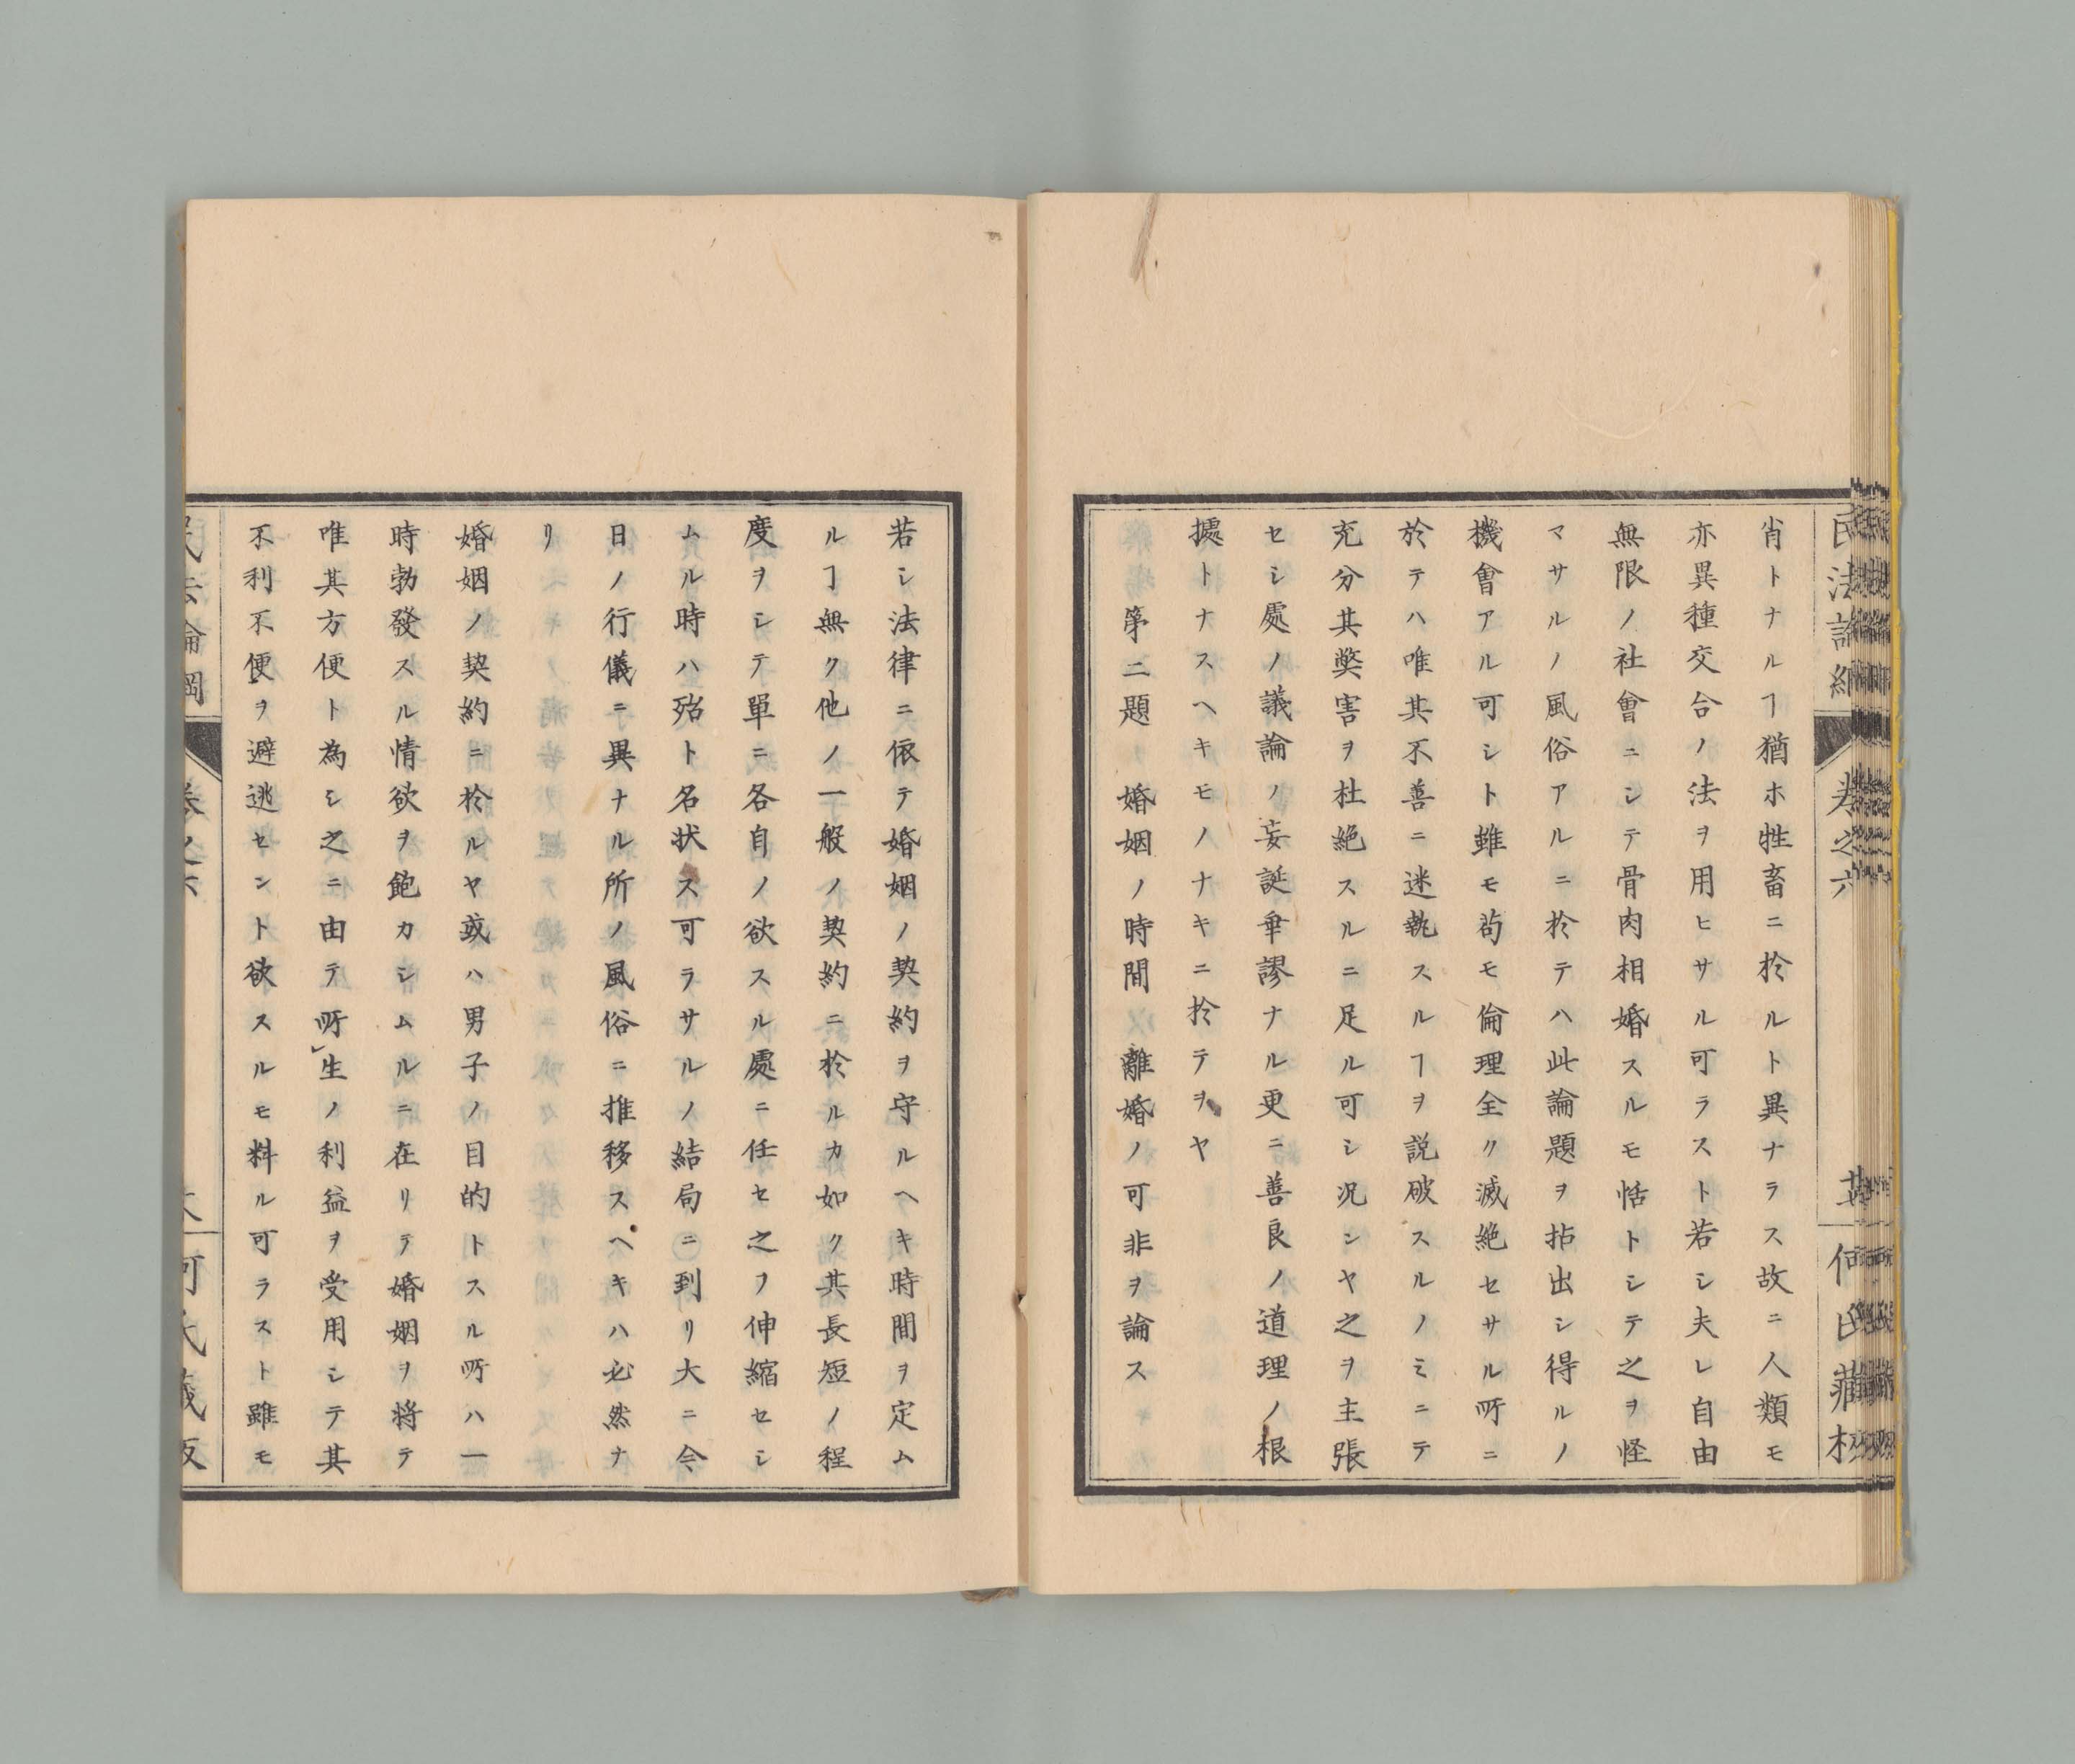 肖トナルヿ猶ホ牲畜ニ於ルト異ナラス故ニ人類モ
亦異種交合ノ法ヲ用ヒサル可ラスト若シ夫レ自由
無限ノ社會ニシテ骨肉相婚スルモ恬トシテ之ヲ怪
マサルノ風俗アルニ於テハ此論題ヲ拈出シ得ルノ
機會アル可シト雖モ苟モ倫理全ク滅絶セサル所ニ
於テハ唯其不善ニ迷執スルヿヲ説破スルノミニテ
充分其弊害ヲ杜絶スルニ足ル可シ况ンヤ之ヲ主張
セシ處ノ議論ノ妄誕乖謬ナル更ニ善良ノ道理ノ根
據トナスヘキモノナキニ於テヲヤ
第二題 婚姻ノ時間 離婚ノ可非ヲ論ス
若シ法律ニ依テ婚姻ノ契約ヲ守ルヘキ時間ヲ定ム
ルヿ無ク他ノ一般ノ契約ニ於ルカ如ク其長短ノ程
度ヲシテ單ニ各自ノ欲スル處ニ任セ之ヲ伸縮セシ
ムル時ハ殆ト名状ス可ラサルノ結局ニ到リ大ニ今
日ノ行儀ニ異ナル所ノ風俗ニ推移スヘキハ必然ナ
リ
婚姻ノ契約ニ於ルヤ或ハ男子ノ目的トスル所ハ一
時勃發スル情欲ヲ飽カシムルニ在リテ婚姻ヲ将テ
唯其方便ト為シ之ニ由テ所生ノ利益ヲ受用シテ其
不利不便ヲ避逃セント欲スルモ料ル可ラスト雖モ